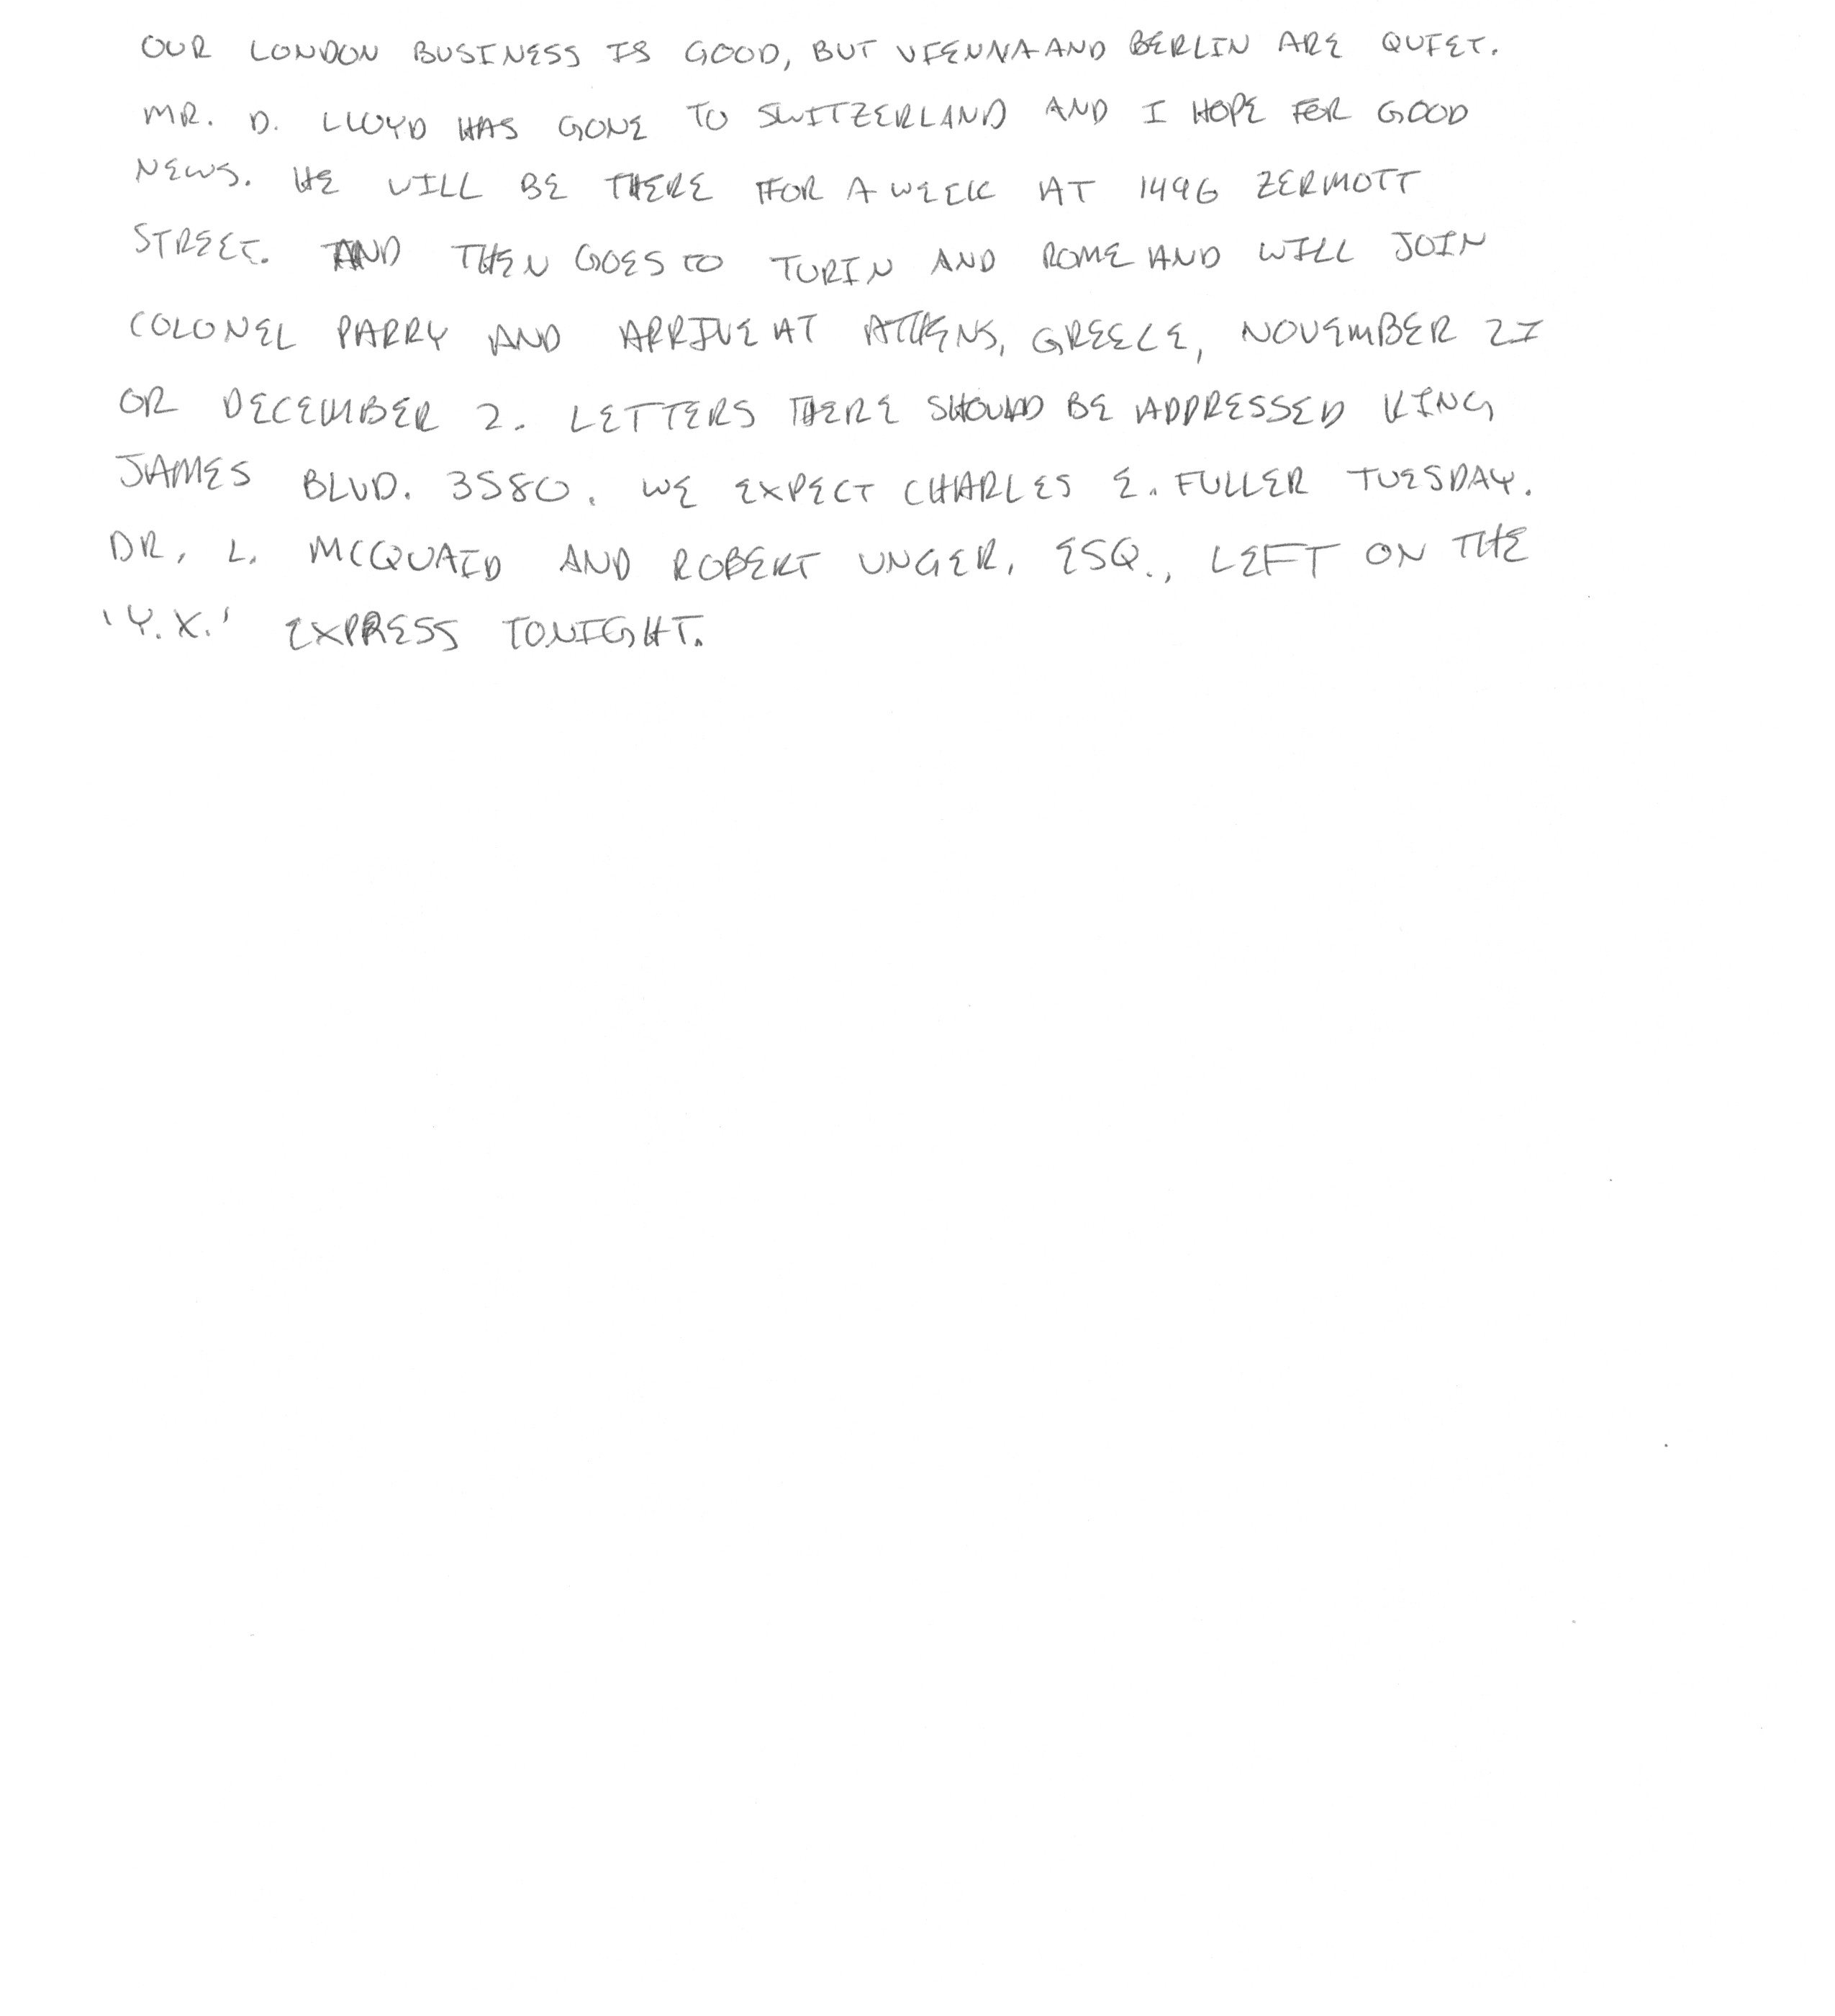 OUR LONDON BUSINESS IS GOOD, BUT VIENNA AND BERLIN ARE QUIET.
MR. D. LLOYD HAS GONE TO SWITZERLAND AND I HOPE FOR GOOD
NEWS. HE WILL BE THERE FOR A WEEK AT 1496 ZERMOTT
STREET. AND THEN GOES TO TURIN AND ROME AND WILL JOIN
COLONEL PARRY AND ARRIVE AT ATHENS, GREECE, NOVEMBER 21
OR DECEMBER 2. LETTERS THERE SHOULD BE ADDRESSED KING
JAMES BLVD. 3580. WE EXPECT CHARLES E. FULLER TUESDAY.
DR. L. MCQUAID AND ROBERT UNGER, ESQ., LEFT ON THE
'Y.X.' EXPRESS TONIGHT.